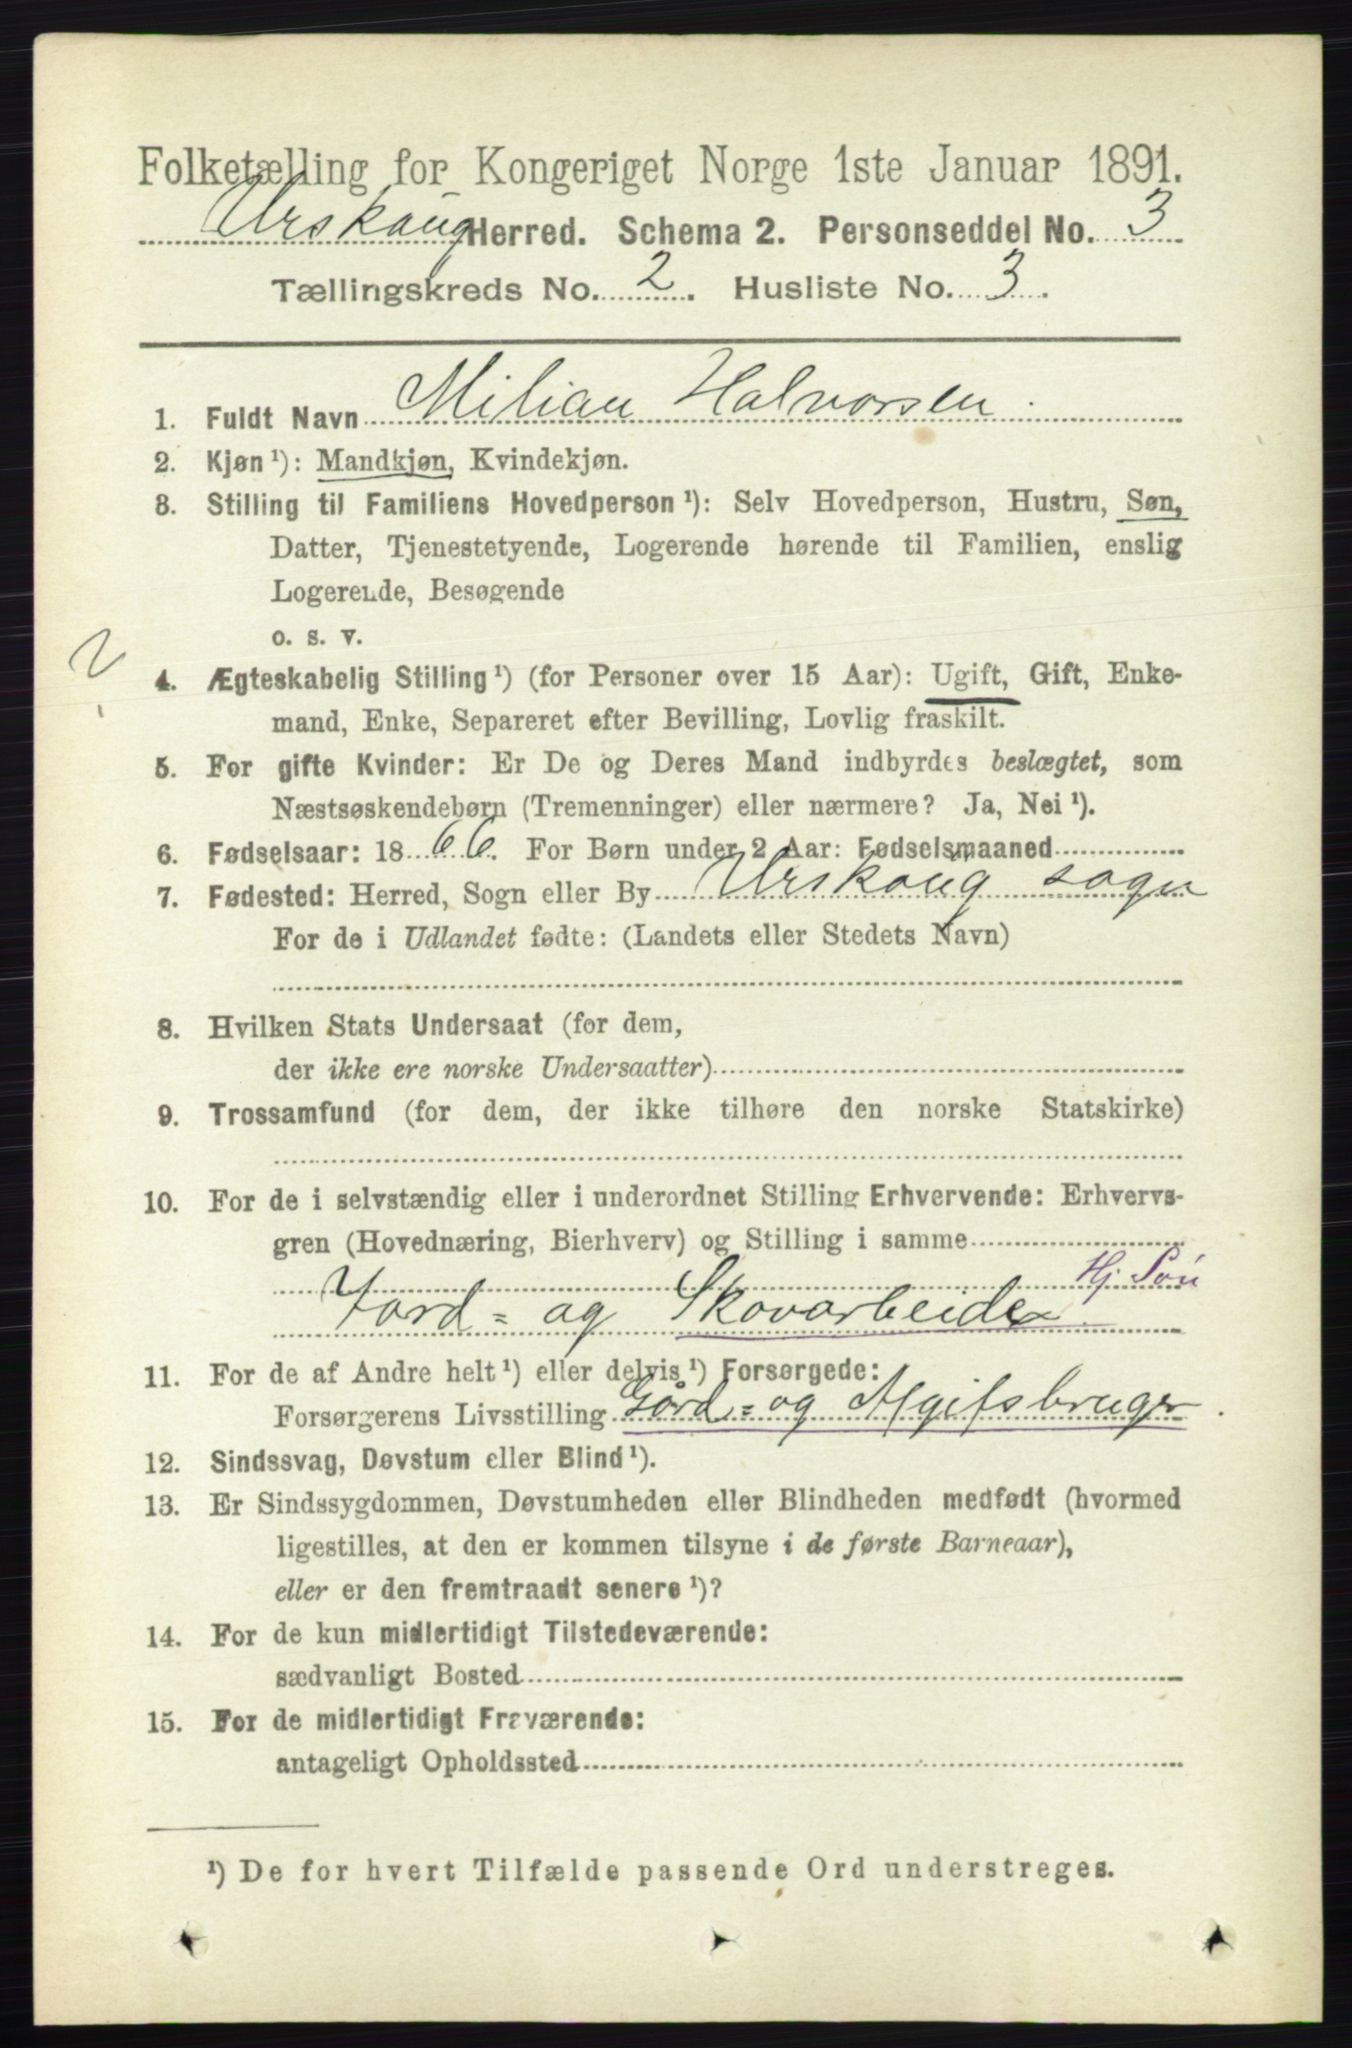 Folketælling for Kongeriget Norge 1ste Januar 1891.
Urskoug Herred. Schema 2. Personseddel No. 3
Tællingskreds No. 2. Husliste No. 3.
1. Fuldt Navn Milian Halvorsen.
2. Kjøn ¹): Mandkjøn, Kvindekjøn.
3. Stilling til Familiens Hovedperson ¹): Selv Hovedperson, Hustru, Søn,
Datter, Tjenestetyende, Logerende hørende til Familien, enslig
Logerende, Besøgende
o. s. v.
4. Ægteskabelig Stilling ¹) (for Personer over 15 Aar): Ugift, Gift, Enke-
mand, Enke, Separeret efter Bevilling, Lovlig fraskilt.
5. For gifte Kvinder: Er De og Deres Mand indbyrdes beslægtet, som
Næstsøskendebørn (Tremenninger) eller nærmere? Ja, Nei ¹).
6. Fødselsaar: 1866. For Børn under 2 Aar: Fødselsmaaned
7. Fødested: Herred, Sogn eller By Urskoug sogn
For de i Udlandet fødte: (Landets eller Stedets Navn)
8. Hvilken Stats Undersaat (for dem,
der ikke ere norske Undersaatter)
9. Trossamfund (for dem, der ikke tilhøre den norske Statskirke)
10. For de i selvstændig eller i underordnet Stilling Erhvervende: Erhvervs-
gren (Hovednæring, Bierhverv) og Stilling i samme
Hj. Søn
Jord- og Skovarbeider
11. For de af Andre helt ¹) eller delvis ¹) Forsørgede:
Forsørgerens Livsstilling Gård- og Afgifsbruger.
12. Sindssvag, Døvstum eller Blind ¹).
13. Er Sindssygdommen, Døvstumheden eller Blindheden medfødt (hvormed
ligestilles, at den er kommen tilsyne i de første Barneaar),
eller er den fremtraadt senere ¹)?
14. For de kun midlertidigt Tilstedeværende:
sædvanligt Bosted
15. For de midlertidigt Fraværende:
antageligt Opholdssted
¹) De for hvert Tilfælde passende Ord understreges.